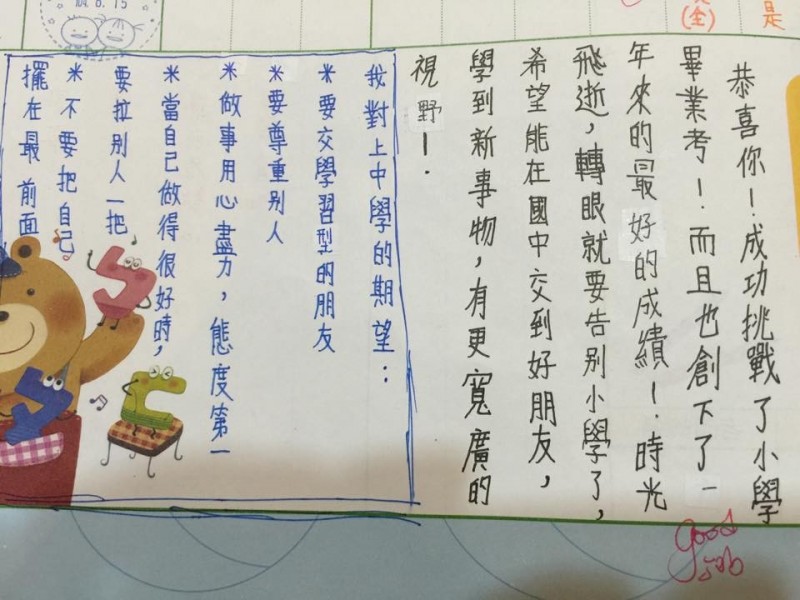 是
(全)
恭喜你！成功挑戰了小學
畢業考！而且也創下了一
年來的最好的成績！時光
飛逝，轉眼就要告別小學了，
希望能在國中交到好朋友，
學到新事物，有更寬廣的
視野！
我對上中學的期望：
*要交學習型的朋友
*要尊重別人
*做事用心盡力，態度第一
*當自己做得很好時，
要拉別人一把
*不要把自己
擺在最前面
good
job